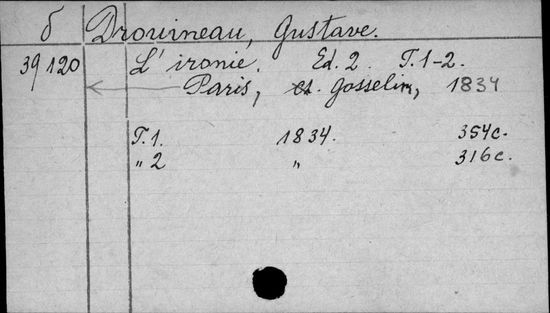 б Drouineau, Gustave.
39120 L'ironie. Ed. 2. T. 1-2.
Paris, Ch. Gosselin, 1834
T. 1. 1834. 354c.
„ 2 „ 316c.